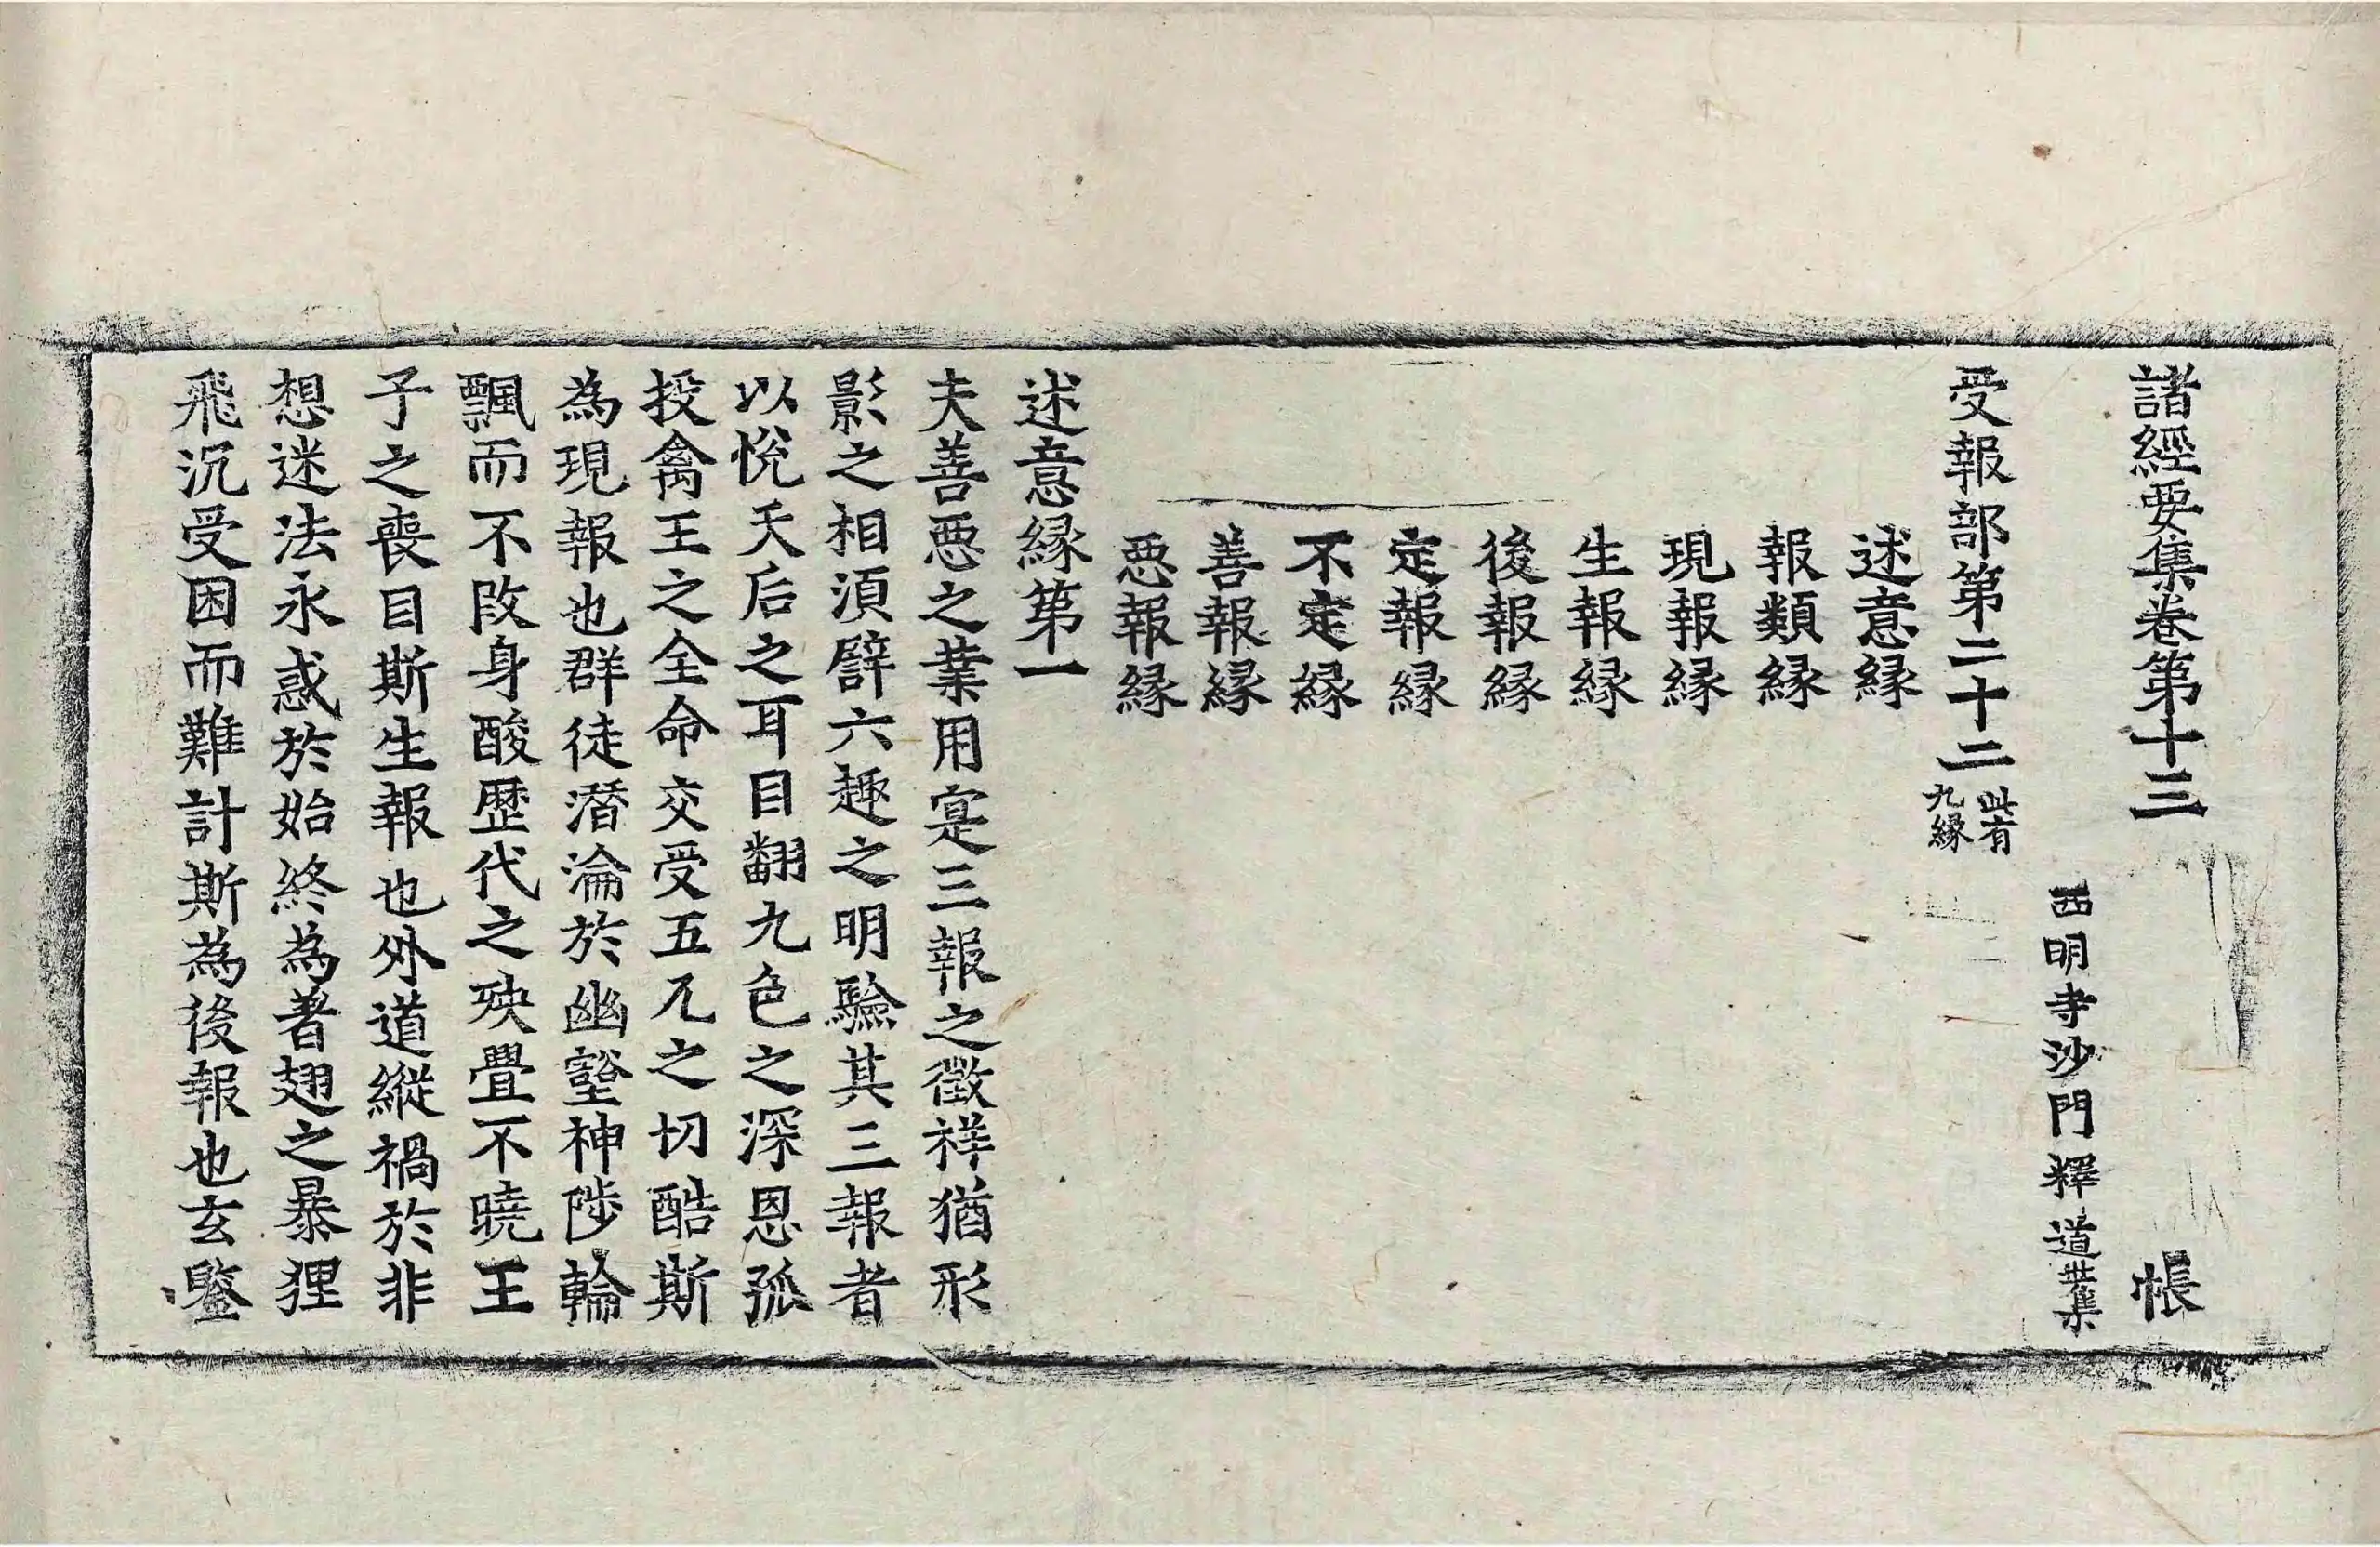 諸經要集卷第十三 帳
西明寺沙門釋道世集
受報部第二十二 此有九緣
述意緣
報類緣
現報緣
生報緣
後報緣
定報緣
不定緣
善報緣
惡報緣
述意緣第一
夫善惡之業用寔三報之徵祥猶形
影之相湏譬六趣之明驗其三報者
以悅天后之耳目翻九色之深恩孤
投禽王之全命交受五兀之切酷斯
為現報也群徒潛淪於幽壑神陟輪
飄而不改身酸歷代之殃疊不曉王
子之喪目斯生報也外道縱禍於非
想迷法永惑於始終為著翅之暴狸
飛沉受困而難計斯為後報也玄鑒